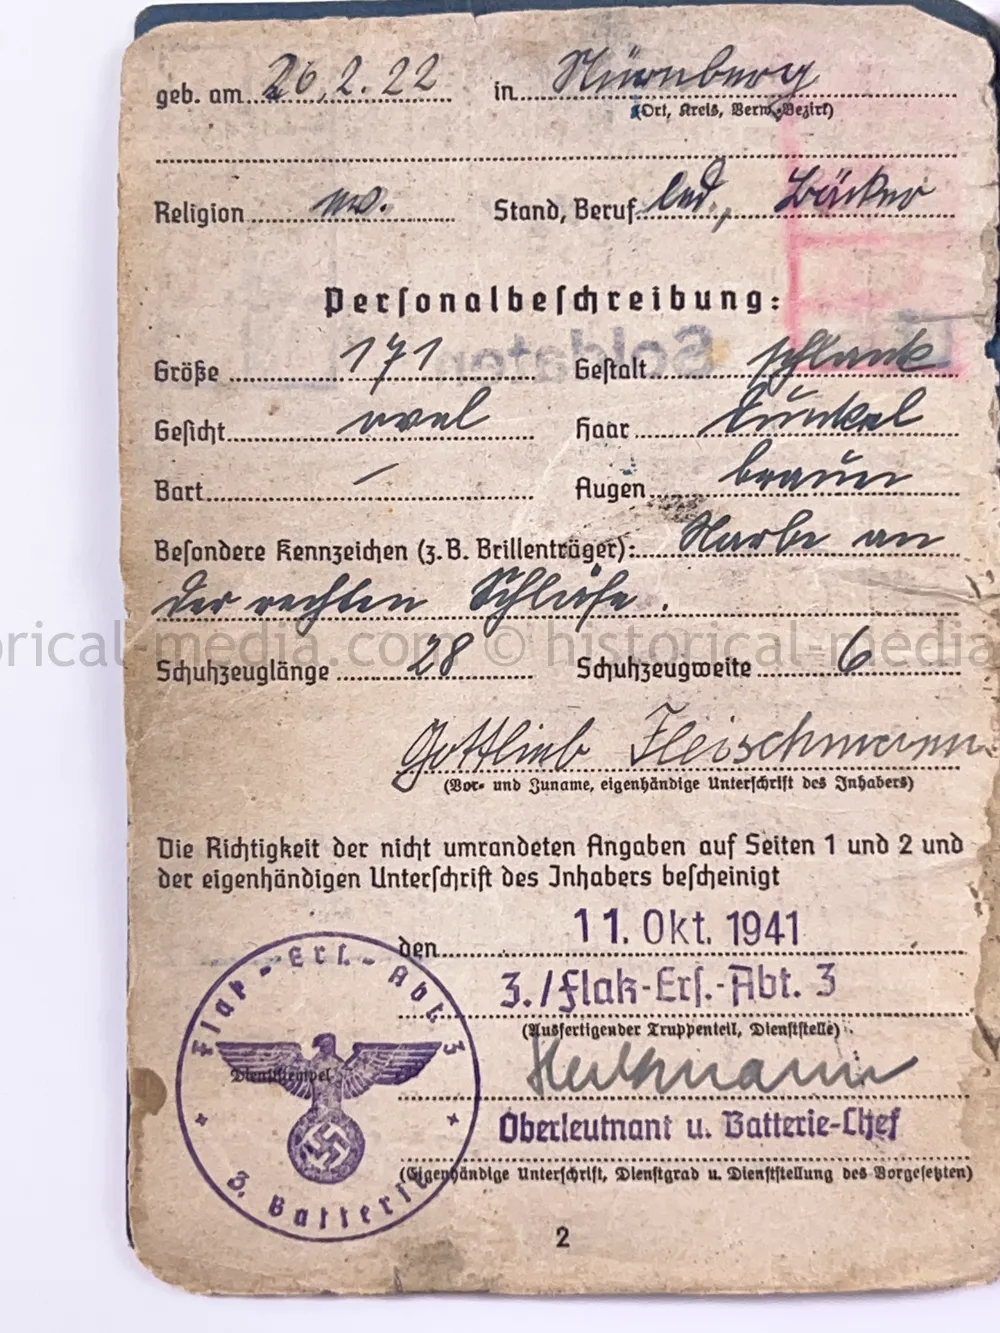 geb. am 26.2.22 in Nürnberg
(Ort, Kreis, Verw.-Bezirk)
Religion ev. Stand, Beruf led., Bäcker
Personalbeschreibung:
Soldaten
Größe 171 Gestalt schlank
Gesicht oval Haar dunkel
Bart — Augen braun
Besondere Kennzeichen (z.B. Brillenträger): Narbe an
der rechten Schläfe.
historical-media.com © historical-media
Schuhzeuglänge 28 Schuhzeugweite 6
Gottlieb Fleischmann
(Vor- und Zuname, eigenhändige Unterschrift des Inhabers)
Die Richtigkeit der nicht umrandeten Angaben auf Seiten 1 und 2 und
der eigenhändigen Unterschrift des Inhabers bescheinigt
den 11. Okt. 1941
3./Flak-Ers.-Abt. 3
(Ausfertigender Truppenteil, Dienststelle)
Oberleutnant u. Batterie-Chef
(Eigenhändige Unterschrift, Dienstgrad u. Dienststellung des Vorgesetzten)
Flak-Ers.-Abt. 3
Dienststempel
3. Batterie
2